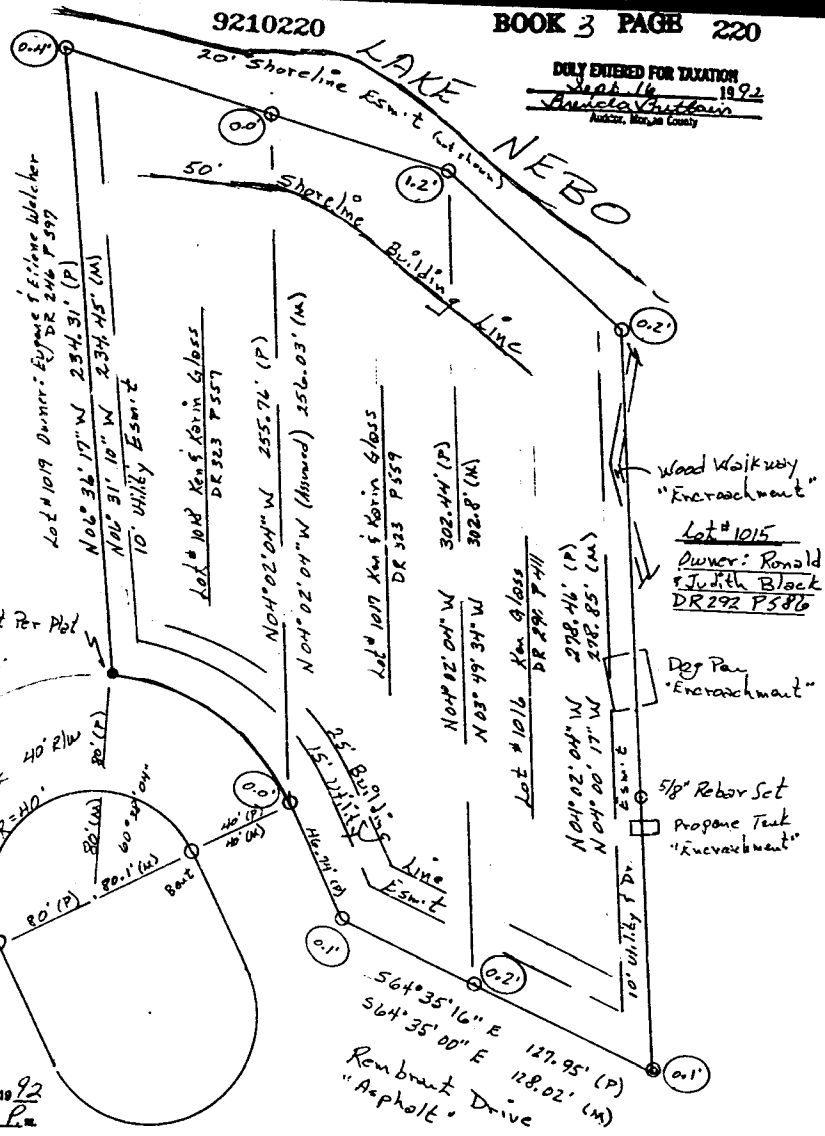 9210220
BOOK 3 PAGE 220
DULY ENTERED FOR TAXATION
Sept 16 1992
Brenda Brittain
Auditor, Morgan County
LAKE NEBO
20' Shoreline Esm't (not shown)
0.4'
0.0'
1.2'
0.2'
50' Shoreline Building Line
Lot #1019 Owner: Eugene & Eilene Welcher
DR 246 P 597
N06° 36' 17" W 234.31' (P)
N06° 31' 10" W 234.45' (M)
10' Utility Esm't
Lot #1018 Ken & Karin Gloss
DR 323 P 557
N04° 02' 04" W 255.76' (P)
N04° 02' 04" W (Assumed) 256.03' (M)
Lot #1017 Ken & Karin Gloss
DR 323 P 559
N04° 02' 04" W 302.44' (P)
N03° 49' 34" W 302.8' (M)
Lot #1016 Ken Gloss
DR 291 P 411
N04° 02' 04" W 278.46' (P)
N04° 00' 17" W 278.85' (M)
10' Utility & Dr. Esm't
Wood Walkway
"Encroachment"
Lot #1015
Owner: Ronald
& Judith Black
DR 292 P 586
Dog Pen
"Encroachment"
5/8" Rebar Set
Propane Tank
"Encroachment"
t Per Plat
40' R/W
R=40'
80' (P)
80' (M)
60°
80' (P)
80.1' (M)
Bent
40' (P)
40' (M)
0.0'
46.74' (P)
15' Utility Esm't
25' Building Line
0.1'
0.2'
S64° 35' 16" E 127.95' (P)
S64° 35' 00" E 128.02' (M)
0.1'
Rembrant Drive
"Asphalt"
1992
P.M.